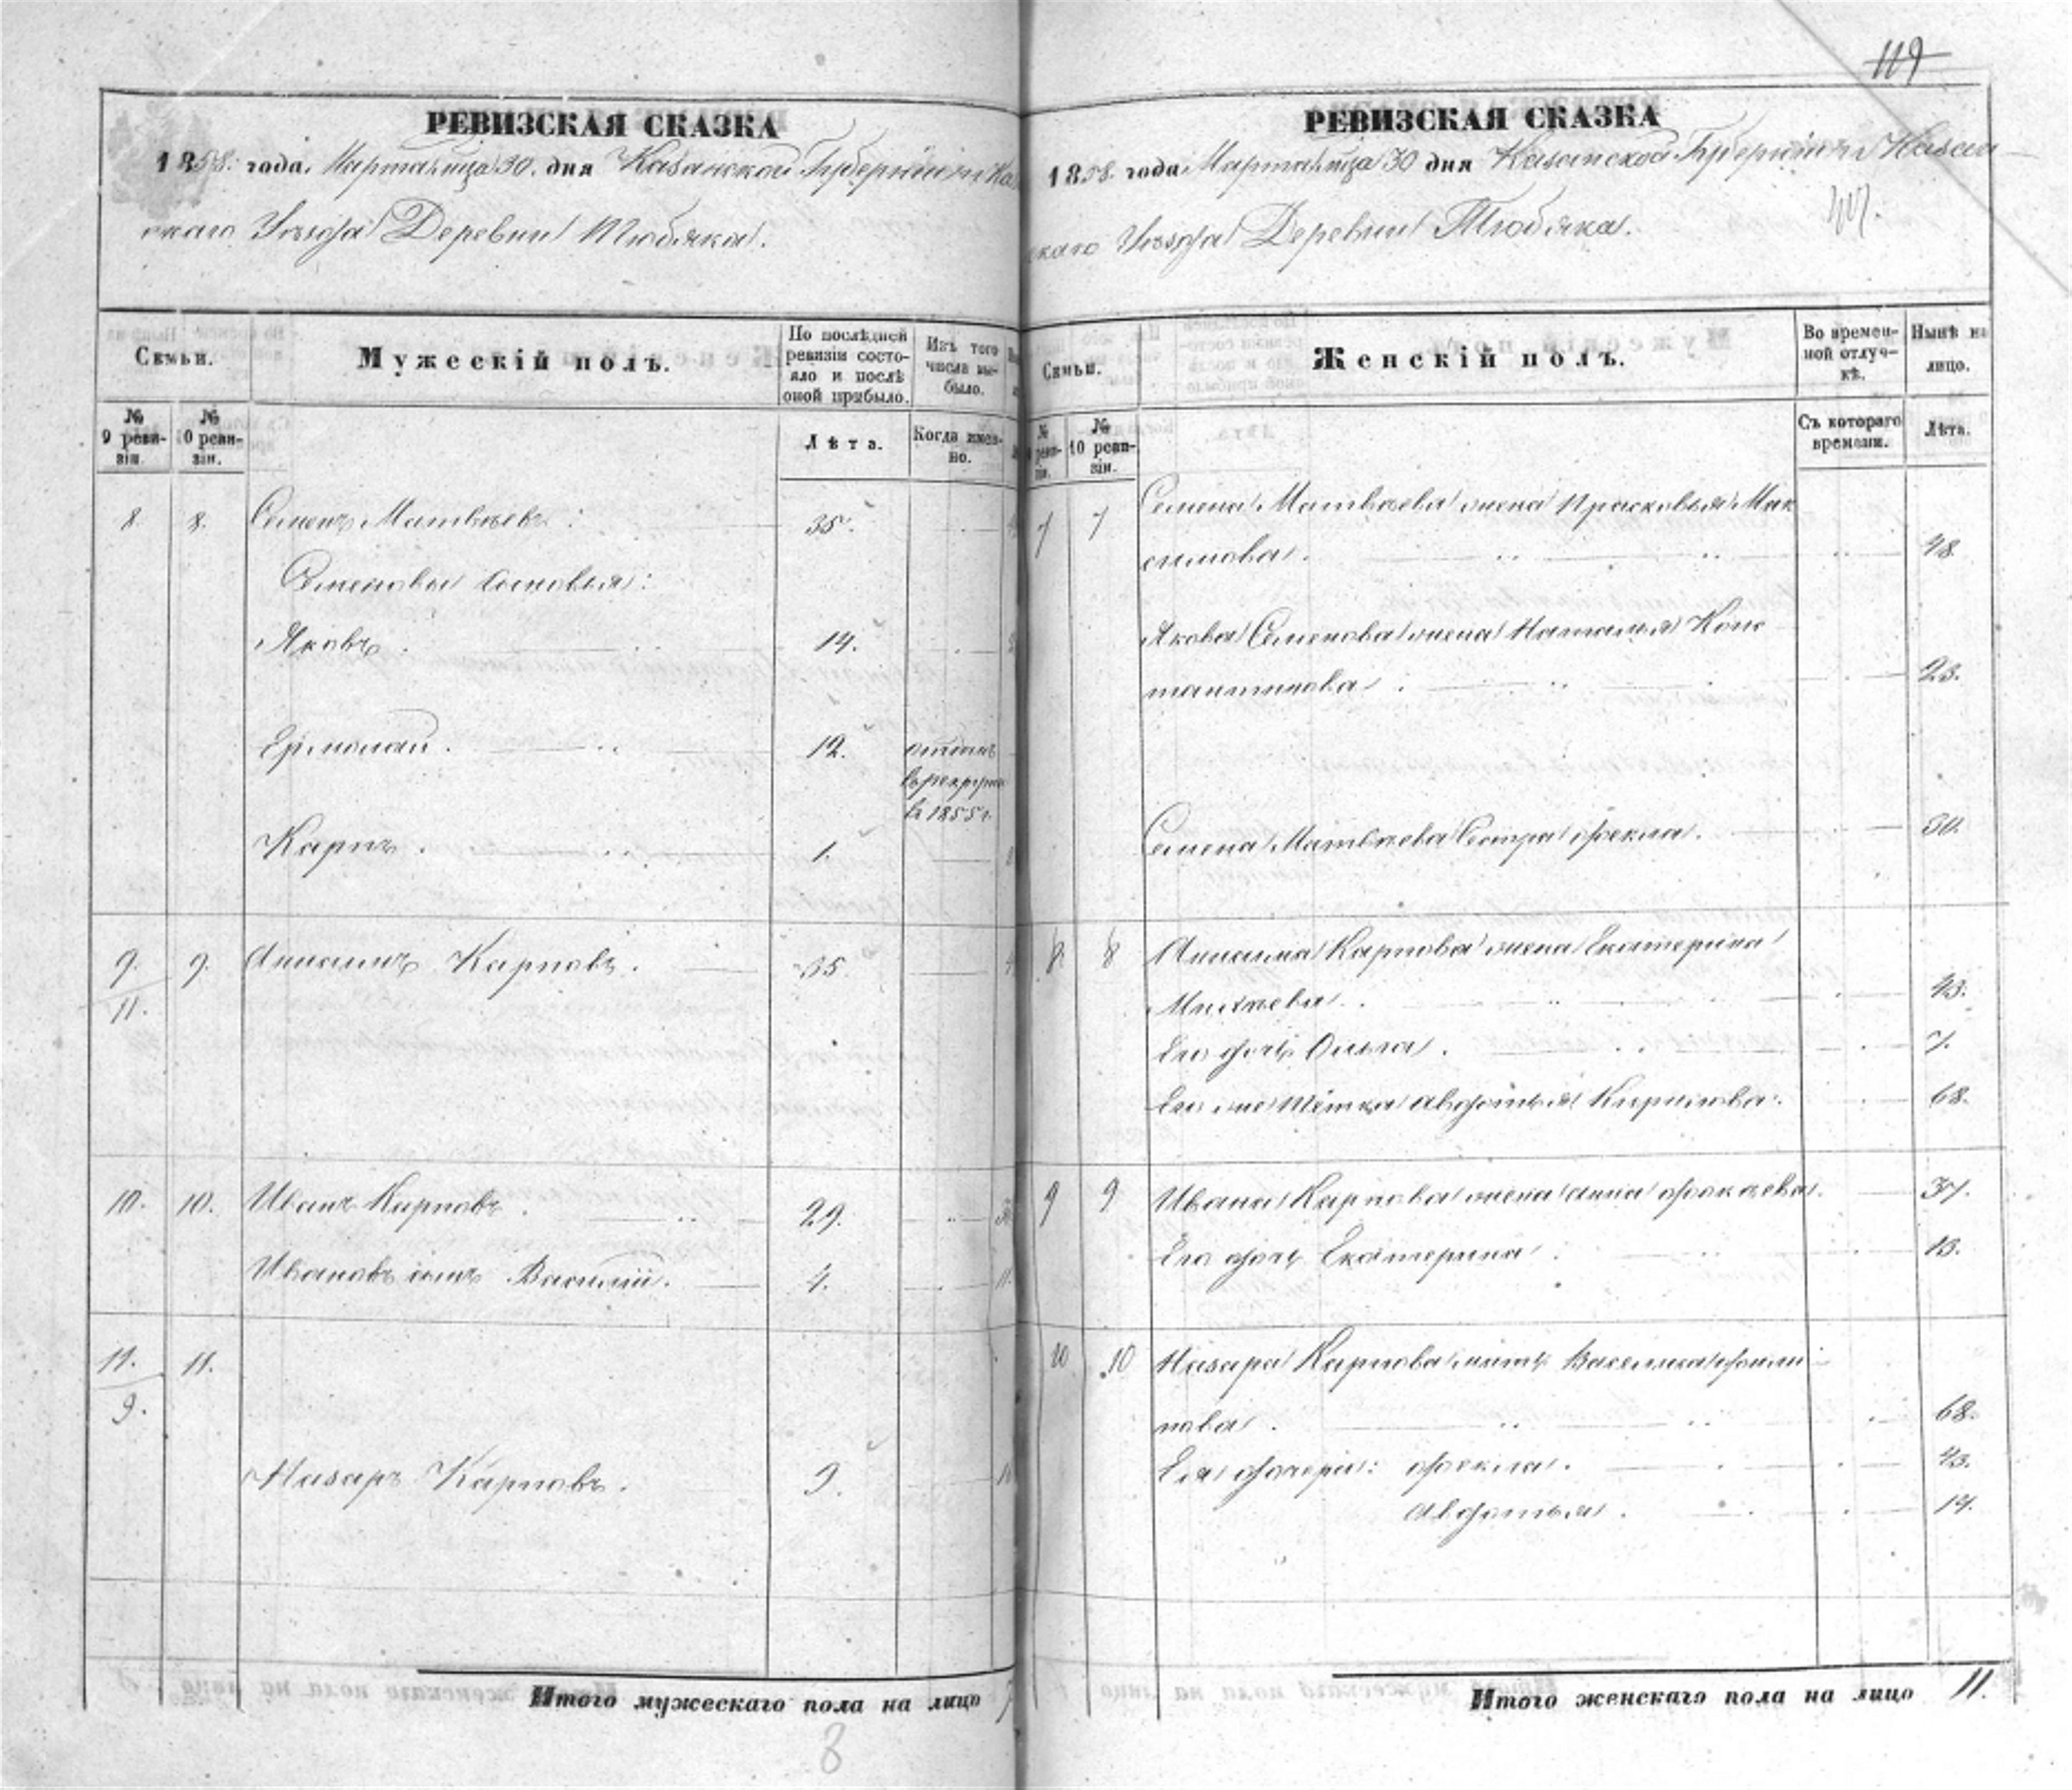 РЕВИЗСКАЯ СКАЗКА
1858. года. Марта м-ца 30. дня Казанской Губерніи и Ка
скаго Уѣзда Деревни Тюбяка.
Семьи.
Мужескій полъ.
По послѣдней ревизіи состояло и послѣ оной прибыло.
Изъ того числа выбыло.
№ 9 ревизіи.
№ 10 ревизіи.
Лѣта.
Когда именно.
8. 8. Семенъ Матвѣевъ: 35.
Семеновы сыновья:
Яковъ. 14.
Ермолай. 12. отданъ
въ рекруты
въ 1855 г.
Карпъ. 1.
9. 9. Анисимъ Карповъ. 35.
11.
10. 10. Иванъ Карповъ. 29.
Ивановъ сынъ Василій. 4.
11. 11.
9.
Назаръ Карповъ. 9.
Итого мужескаго пола на лицо
8
119
РЕВИЗСКАЯ СКАЗКА
1858. года Марта м-ца 30 дня Казанской Губерніи и Казан
скаго Уѣзда Деревни Тюбяка.
Семьи.
Женскій полъ.
Во временной отлучкѣ.
Нынѣ на лицо.
№ 10 ревизіи.
Съ котораго времени.
Лѣта.
7 7 Семена Матвѣева жена Прасковья Мак
симова. 48.
Якова Семенова жена Наталья Конс
тантинова. 23.
Семена Матвѣева Сестра Ѳекла. 50.
8 8 Анисима Карпова жена Екатерина
Михаева. 43.
Его дочь Ольга. 7.
Его же Тётка Авдотья Кирилова. 68.
9 9 Ивана Карпова жена Анна Фокаева. 37.
Его дочь Екатерина. 13.
10 10 Назара Карпова мать Василиса Фили
пова. 68.
Ея дочери: Ѳекла. 43.
Авдотья. 14.
Итого женскаго пола на лицо 11.